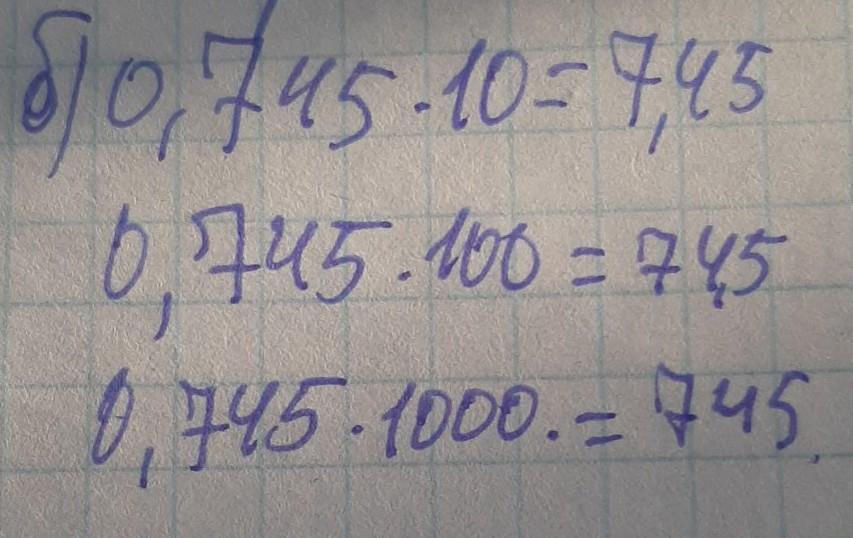 б) 0,745 · 10 = 7,45
0,745 · 100 = 74,5
0,745 · 1000 . = 745.